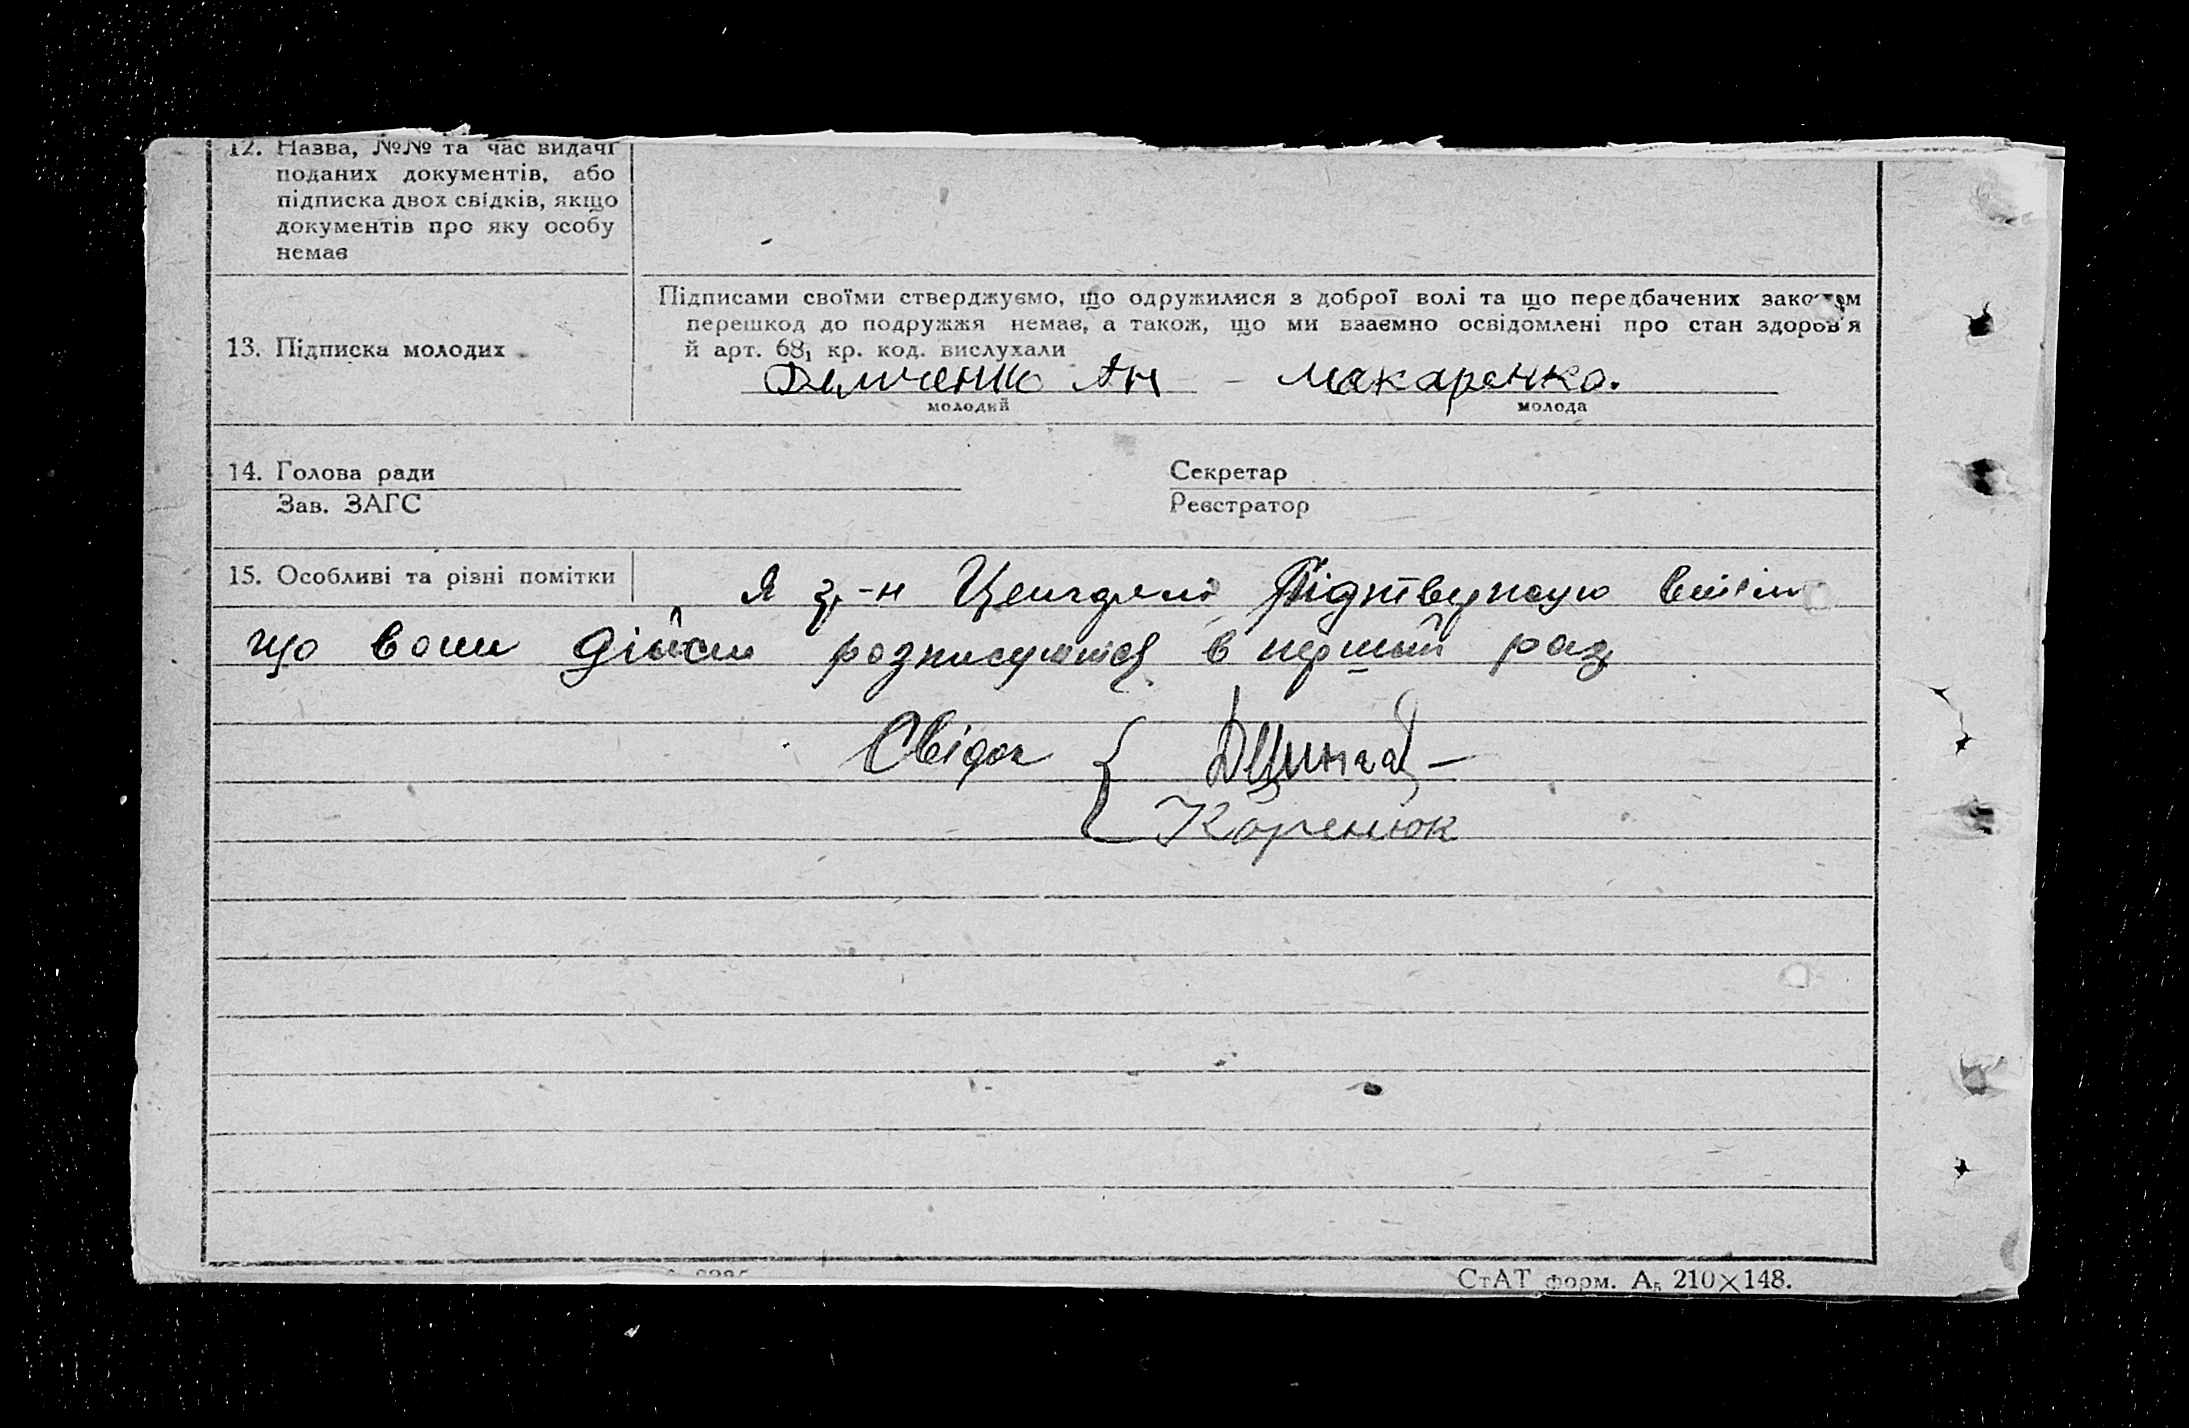 12. Назва, №№ та час видачі
поданих документів, або
підписка двох свідків, якщо
документів про яку особу
немає
13. Підписка молодих
Підписами своїми стверджуємо, що одружилися з доброї волі та що передбачених законом
перешкод до подружжя немає, а також, що ми взаємно освідомлені про стан здоров'я
й арт. 68₁ кр. код. вислухали
Ан - Макаренко.
молодий молода
14. Голова ради Секретар
Зав. ЗАГС Реєстратор
15. Особливі та різні помітки
Я гр-н
що вони дійсн розписуються в перший раз
Свідок
Коренюк
СтАТ форм. А₅ 210×148.